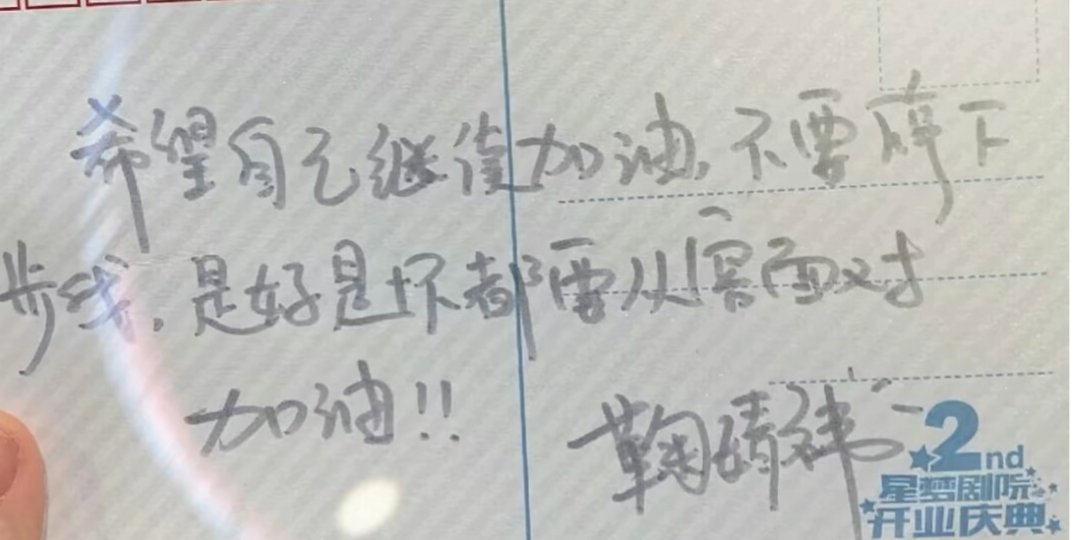 希望自己继续加油,不要停下
步伐,是好是坏都要从容面对
加油!!
鞠婧祎
2nd
星梦剧院
开业庆典